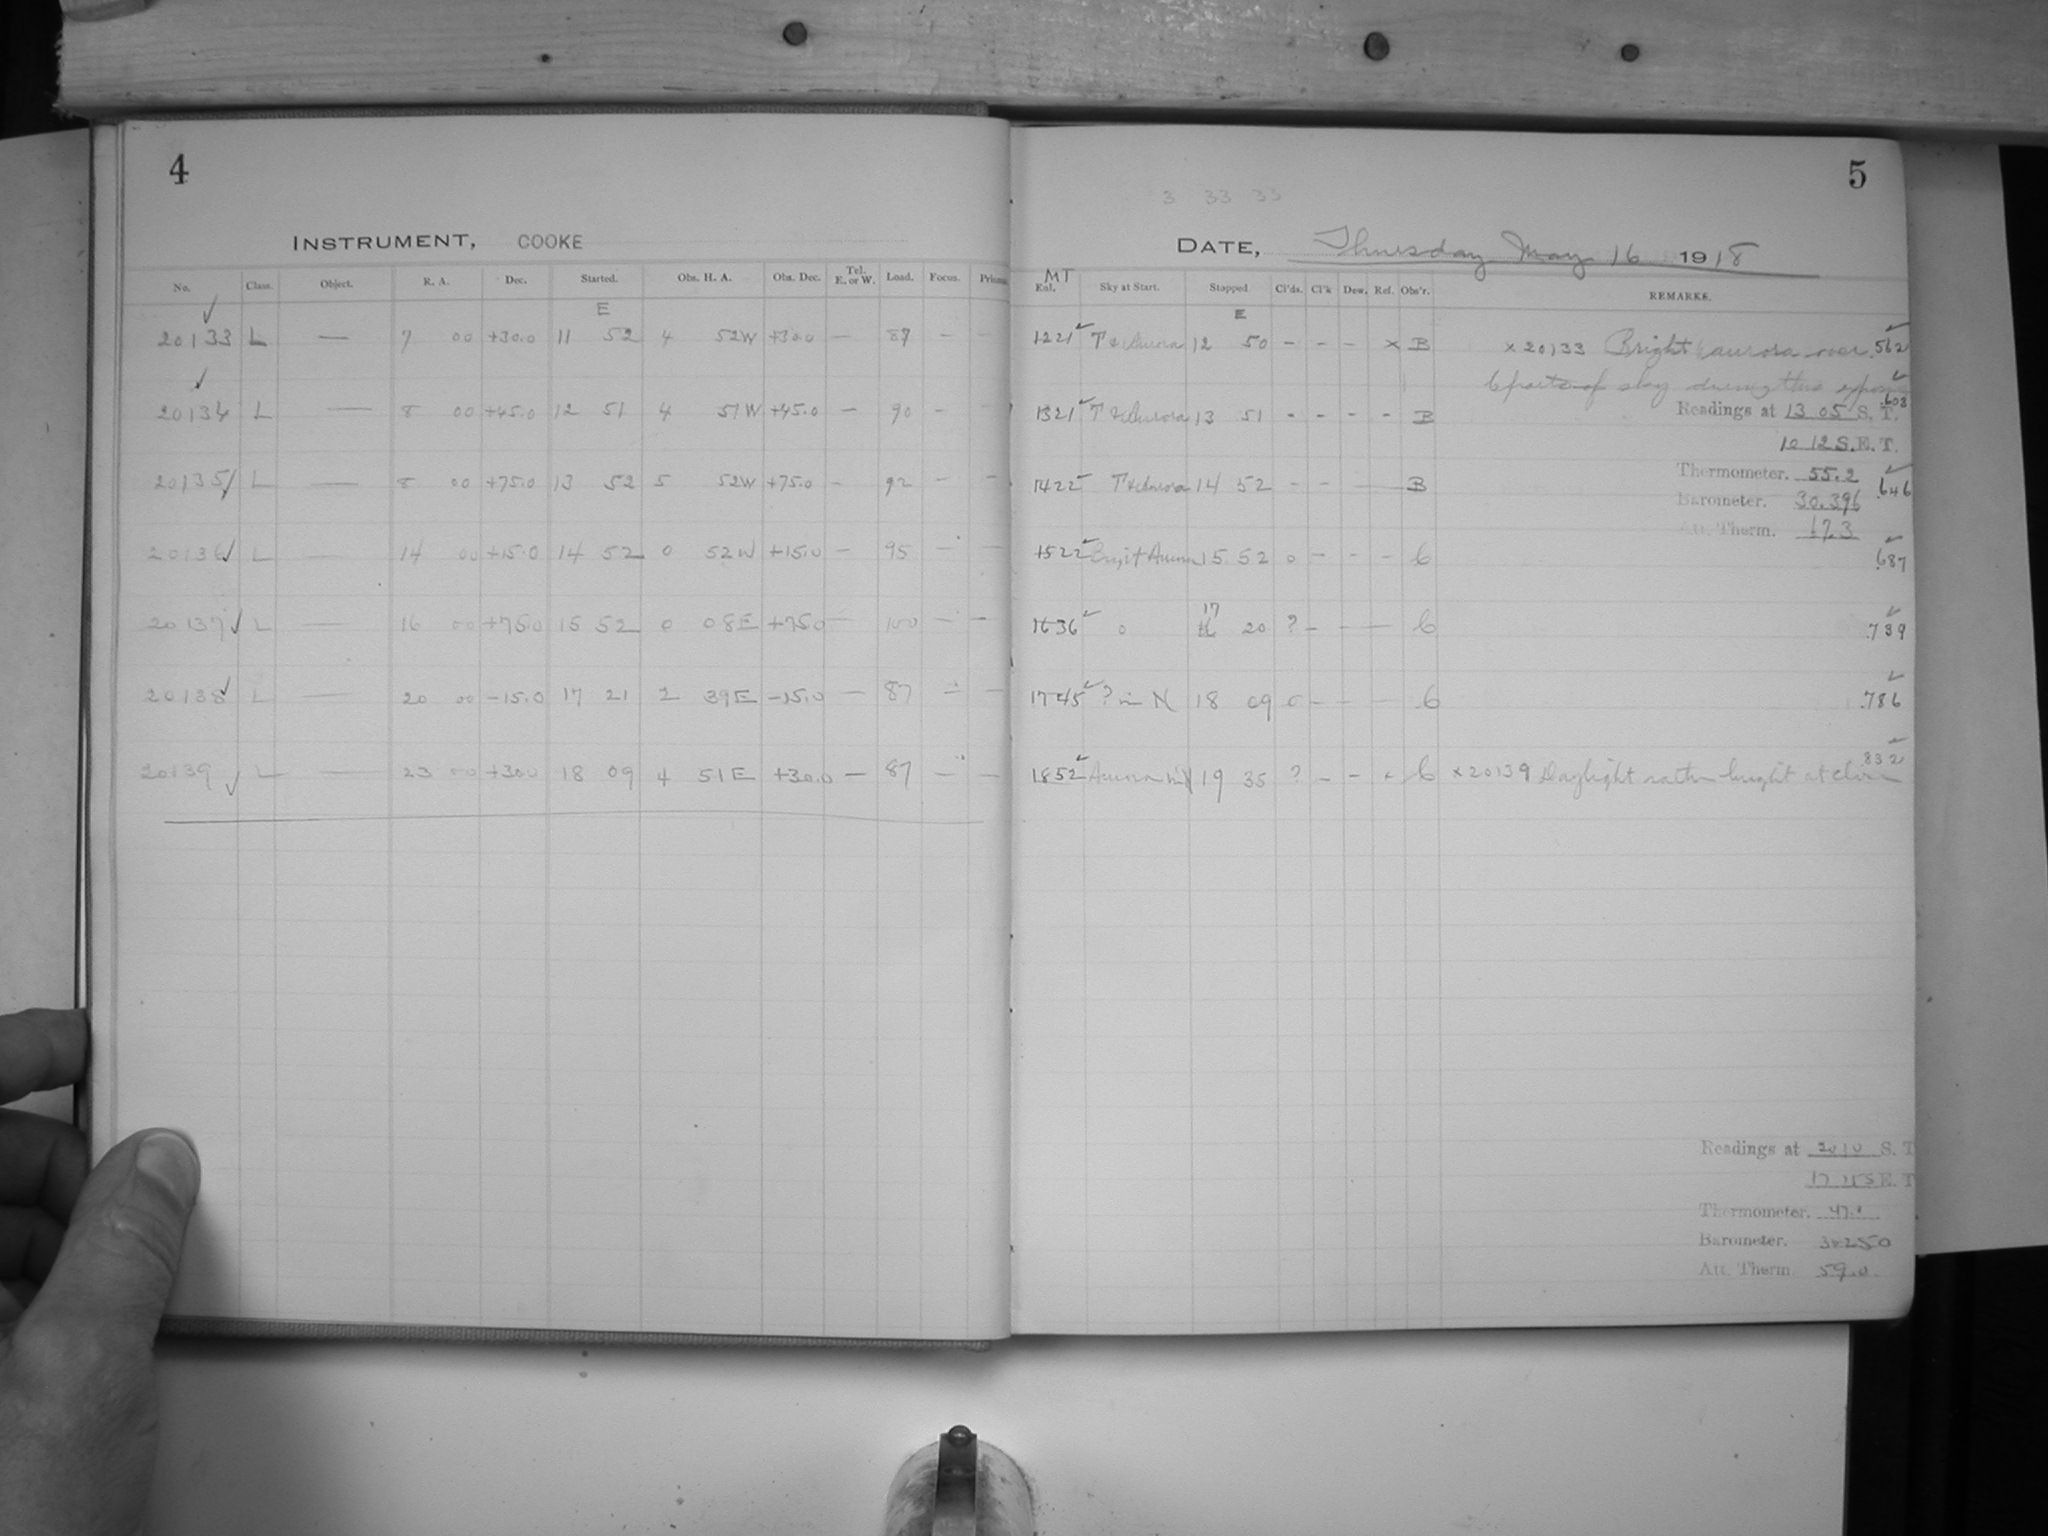 4
INSTRUMENT, COOKE
No. Class. Object. R. A. Dec. Started. Obs. H. A. Obs. Dec. Tel. E. or W. Load. Focus.
E
20133 L — 7 00 +30.0 11 52 4 52W +30.0 — 87 – –
20134 L — 8 00 +45.0 12 51 4 51W +45.0 — 90 –
20135 L — 8 00 +75.0 13 52 5 52W +75.0 – 92 – –
20136 L — 14 00 +15.0 14 52 0 52W +15.0 – 95 – –
20137 L — 16 00 +75.0 15 52 0 08E +75.0 — 100 – –
20138 L — 20 00 –15.0 17 21 2 39E –15.0 — 87 – –
20139 L — 23 00 +30.0 18 09 4 51E +30.0 — 87 – –
5
3 33 33
DATE, Thursday May 16 1918
MT
Sky at Start. Stopped Cl'ds. Cl'k Dew. Ref. Obs'r. REMARKS.
E
1221 12 50 – – – x B x 20133 Bright aurora over .562
6 parts of sky during this
.603
1321 13 51 – – – – B Readings at 13 05 S. T.
10 12 S.E. T.
Thermometer. 55.2
1422 14 52 – – — B .646
Barometer. 30.396
Att. Therm. 17.3
1522 Bright Aurora 15 52 0 – – – 6 .687
17
1636 0 16 20 ? – – — 6 .739
1745 ? in N 18 09 0 – – – 6 .786
.832
1852 Aurora in N 19 35 ? – – x 6 x 20139 Daylight rather bright at close
Readings at 2010 S. T
17 15 S E. T
Thermometer. 47.1
Barometer. 30250
Att. Therm. 59.0